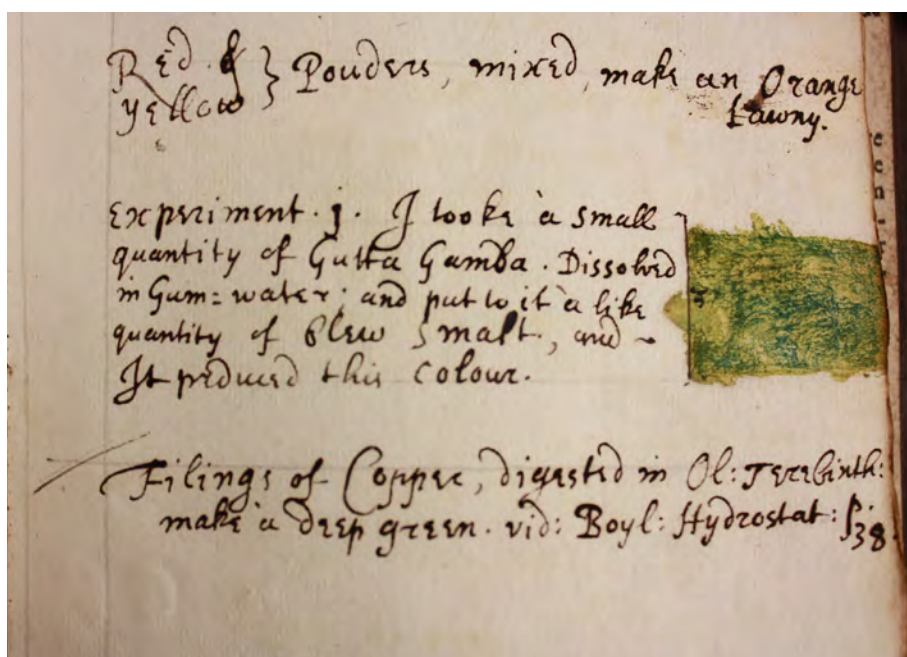 Red &
yellow } Pouders, mixed, make an Orange
tawny.
Experiment. j. I tooke a small
quantity of Gutta Gamba. Dissolved
in Gum=water; and put to it a like
quantity of blew Smalt, and ~
It preduced this Colour.
Filings of Copper, digested in Ol: Terebinth:
make a deep green. vid: Boyl: Hydrostat: 38.